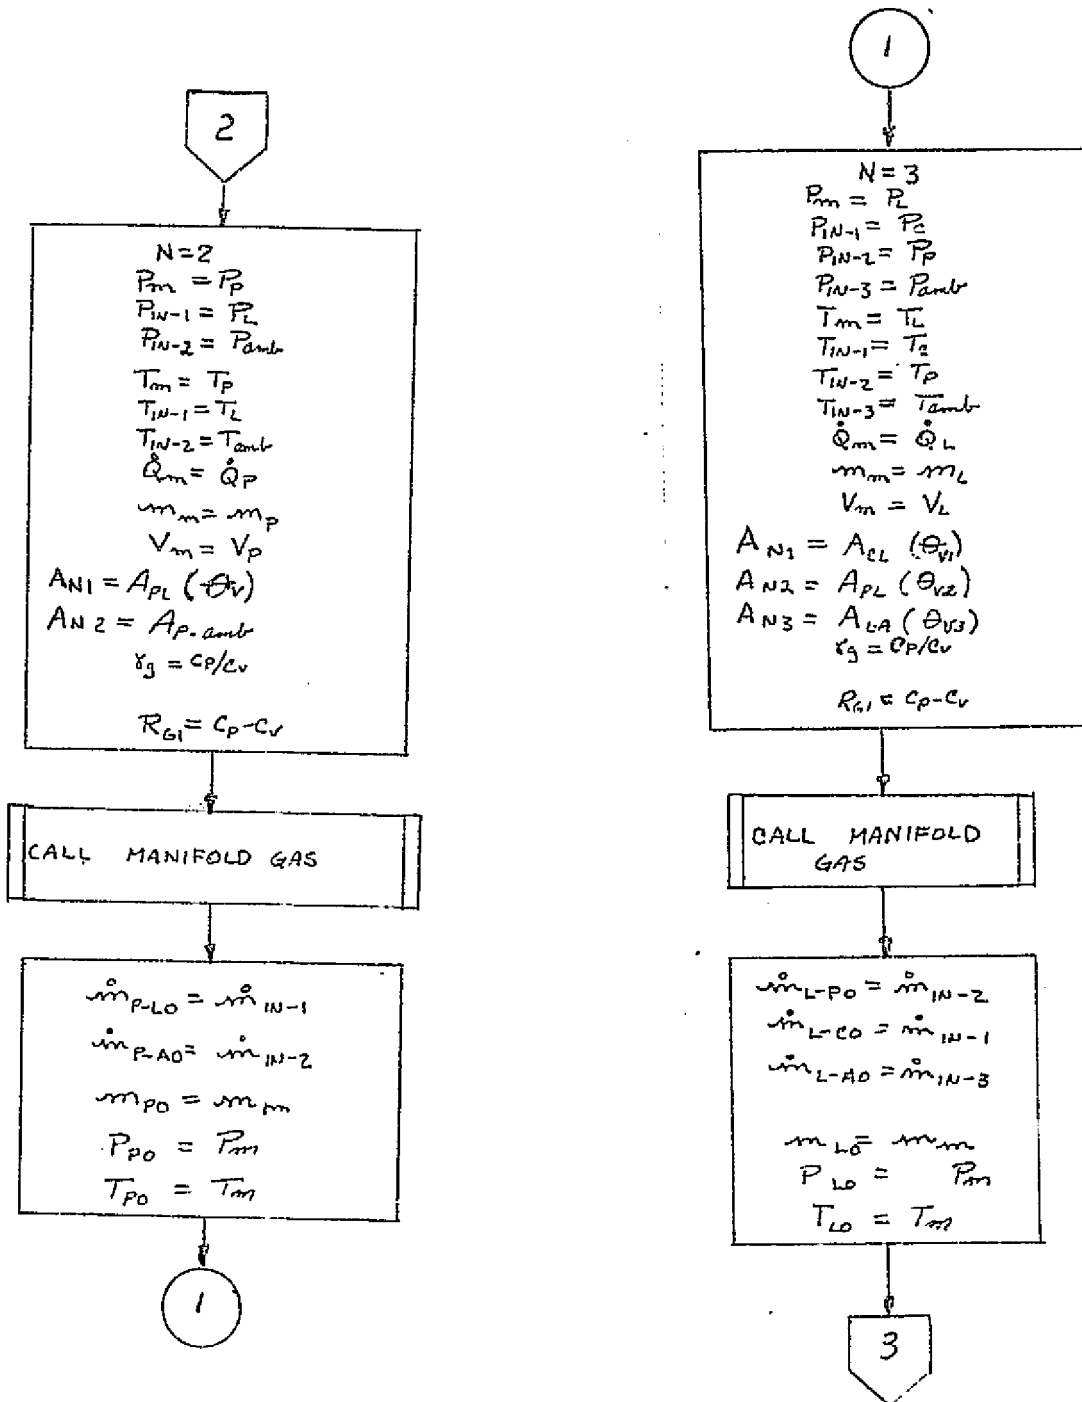 2
N=2
Pm = Pp
PIN-1 = PL
PIN-2 = Pamb
Tm = Tp
TIN-1 = TL
TIN-2 = Tamb
Q̇m = Q̇p
mm = mp
Vm = Vp
AN1 = APL (θv)
AN2 = AP-amb
γg = CP/Cv
RG1 = CP-Cv
CALL MANIFOLD GAS
ṁP-LO = ṁIN-1
ṁP-AO = ṁIN-2
mPO = mm
PPO = Pm
TPO = Tm
1
1
N=3
Pm = PL
PIN-1 = Pc
PIN-2 = Pp
PIN-3 = Pamb
Tm = TL
TIN-1 = Tc
TIN-2 = Tp
TIN-3 = Tamb
Q̇m = Q̇L
mm = mL
Vm = VL
AN1 = ACL (θv1)
AN2 = APL (θv2)
AN3 = ALA (θv3)
γg = CP/Cv
RG1 = CP-Cv
CALL MANIFOLD
GAS
ṁL-PO = ṁIN-2
ṁL-CO = ṁIN-1
ṁL-AO = ṁIN-3
mLO = mm
PLO = Pm
TLO = Tm
3